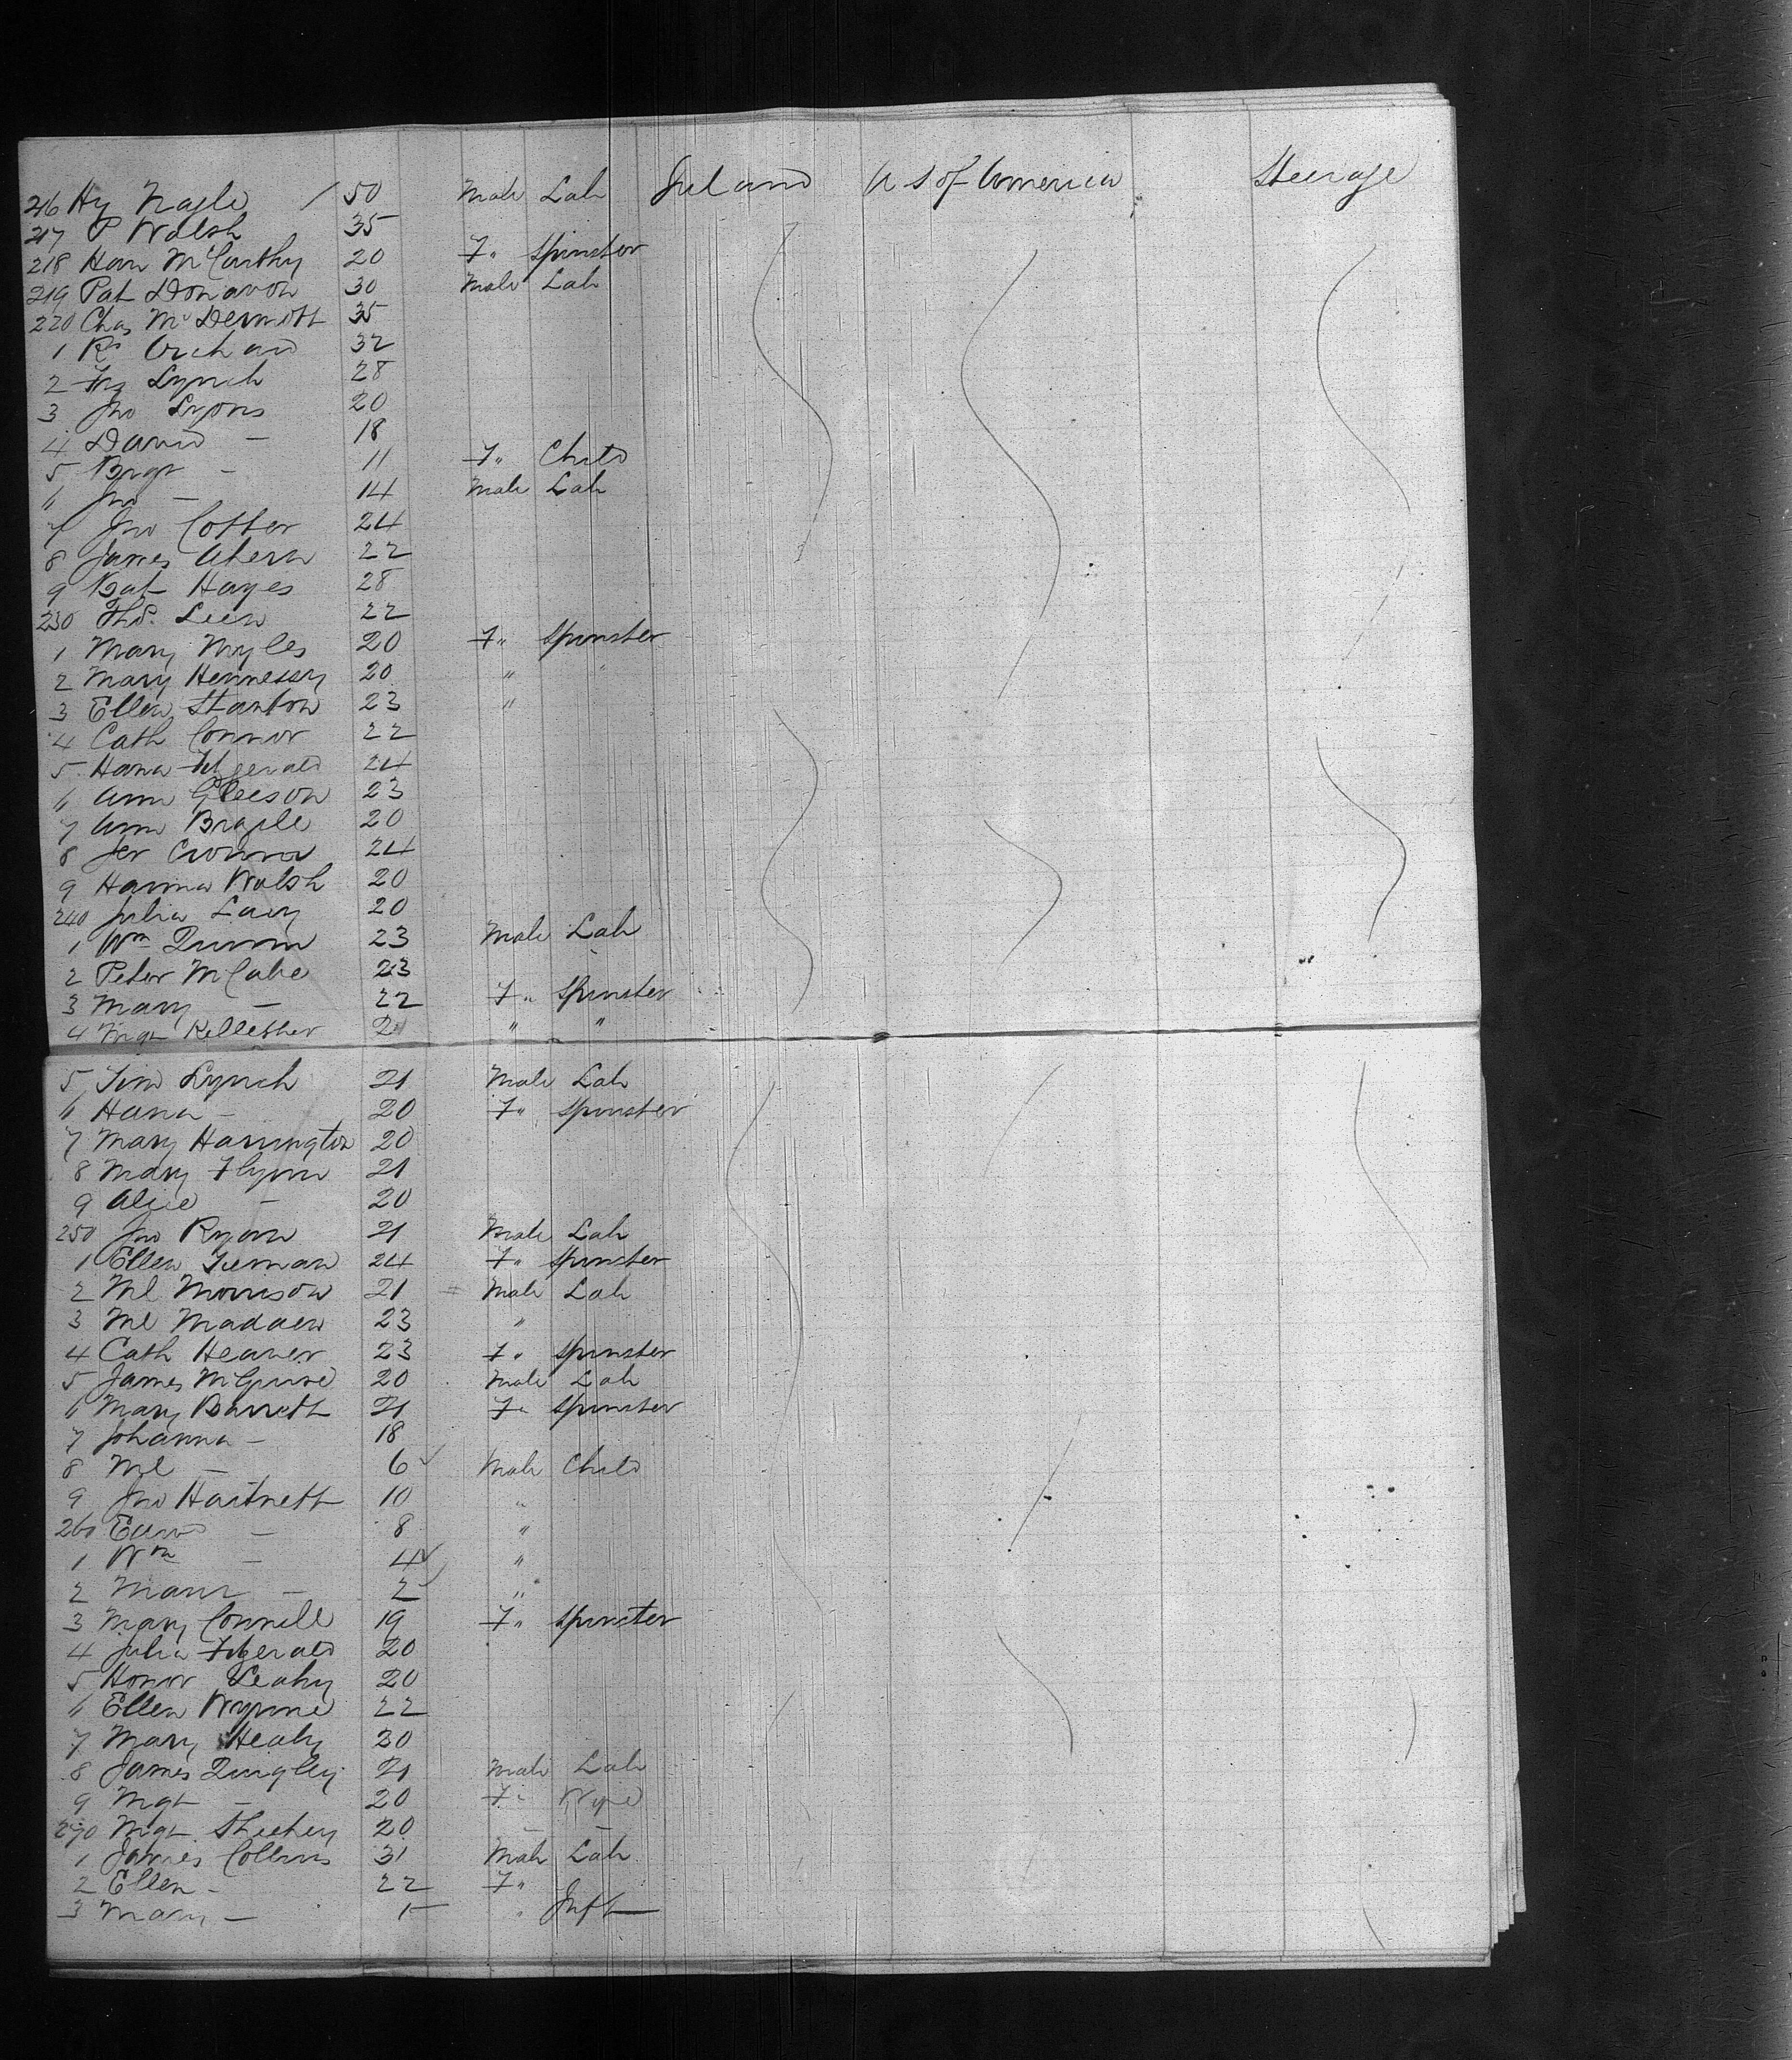 216 Hy Nagle / 50 Male Lab Ireland U S of America Steerage
217 P Walsh 35
218 Han McCarthy 20 F " Spinster
219 Pat Donavon 30 Male Lab
220 Chas McDermott 35
1 Rd Orchard 32
2 Lynch 28
3 Jno Lyons 20
4 David — 18
5 Brgt — 11 F " Child
6 Jno — 14 Male Lab
7 Jno Cotter 24
8 James Ahern 22
9 Bat Hayes 28
230 Thos. 22
1 Mary Myles 20 F " Spinster
2 Mary Hennessy 20 " "
3 Ellen Stanton 23 "
4 Cath Connor 22
5 Hana Fitzgerald 24
6 Ann Gleeson 23
7 Ann 20
8 Jer 24
9 Hanna Walsh 20
240 Julia 20
1 Wm Quinn 23 Male Lab
2 Peter McCabe 23
3 Mary — 22 F " Spinster
4 Mgt Kellesher " "
5 Tim Lynch 21 Male Lab
6 Hana — 20 F " Spinster
7 Mary Harrington 20
8 Mary Flynn 21
9 Alice — 20
250 Jno Ryan 21 Male Lab
1 Ellen 24 F " Spinster
2 Ml Morrison 21 Male Lab
3 Ml Madden 23 "
4 Cath 23 F " Spinster
5 James McGuire 20 Male Lab
6 Mary Barrett 21 F " Spinster
7 Johanna — 18
8 Ml — 6 Male Child
9 Jno Hartnett 10 "
260 Edwd — 8 "
1 Wm — 4 "
2 — 2 "
3 Mary Connell 19 F " Spinster
4 Julia Fitzgerald 20
5 Honor Leahy 20
6 Ellen Wynne 22
7 Mary Healy 20
8 James Quigley 21 Male Lab
9 Mgt — 20 F " Wife
270 Mgt Sheehey 20 — —
1 James Collins 31 Male Lab
2 Ellen — 22 F "
3 Mary — 1 " Inft